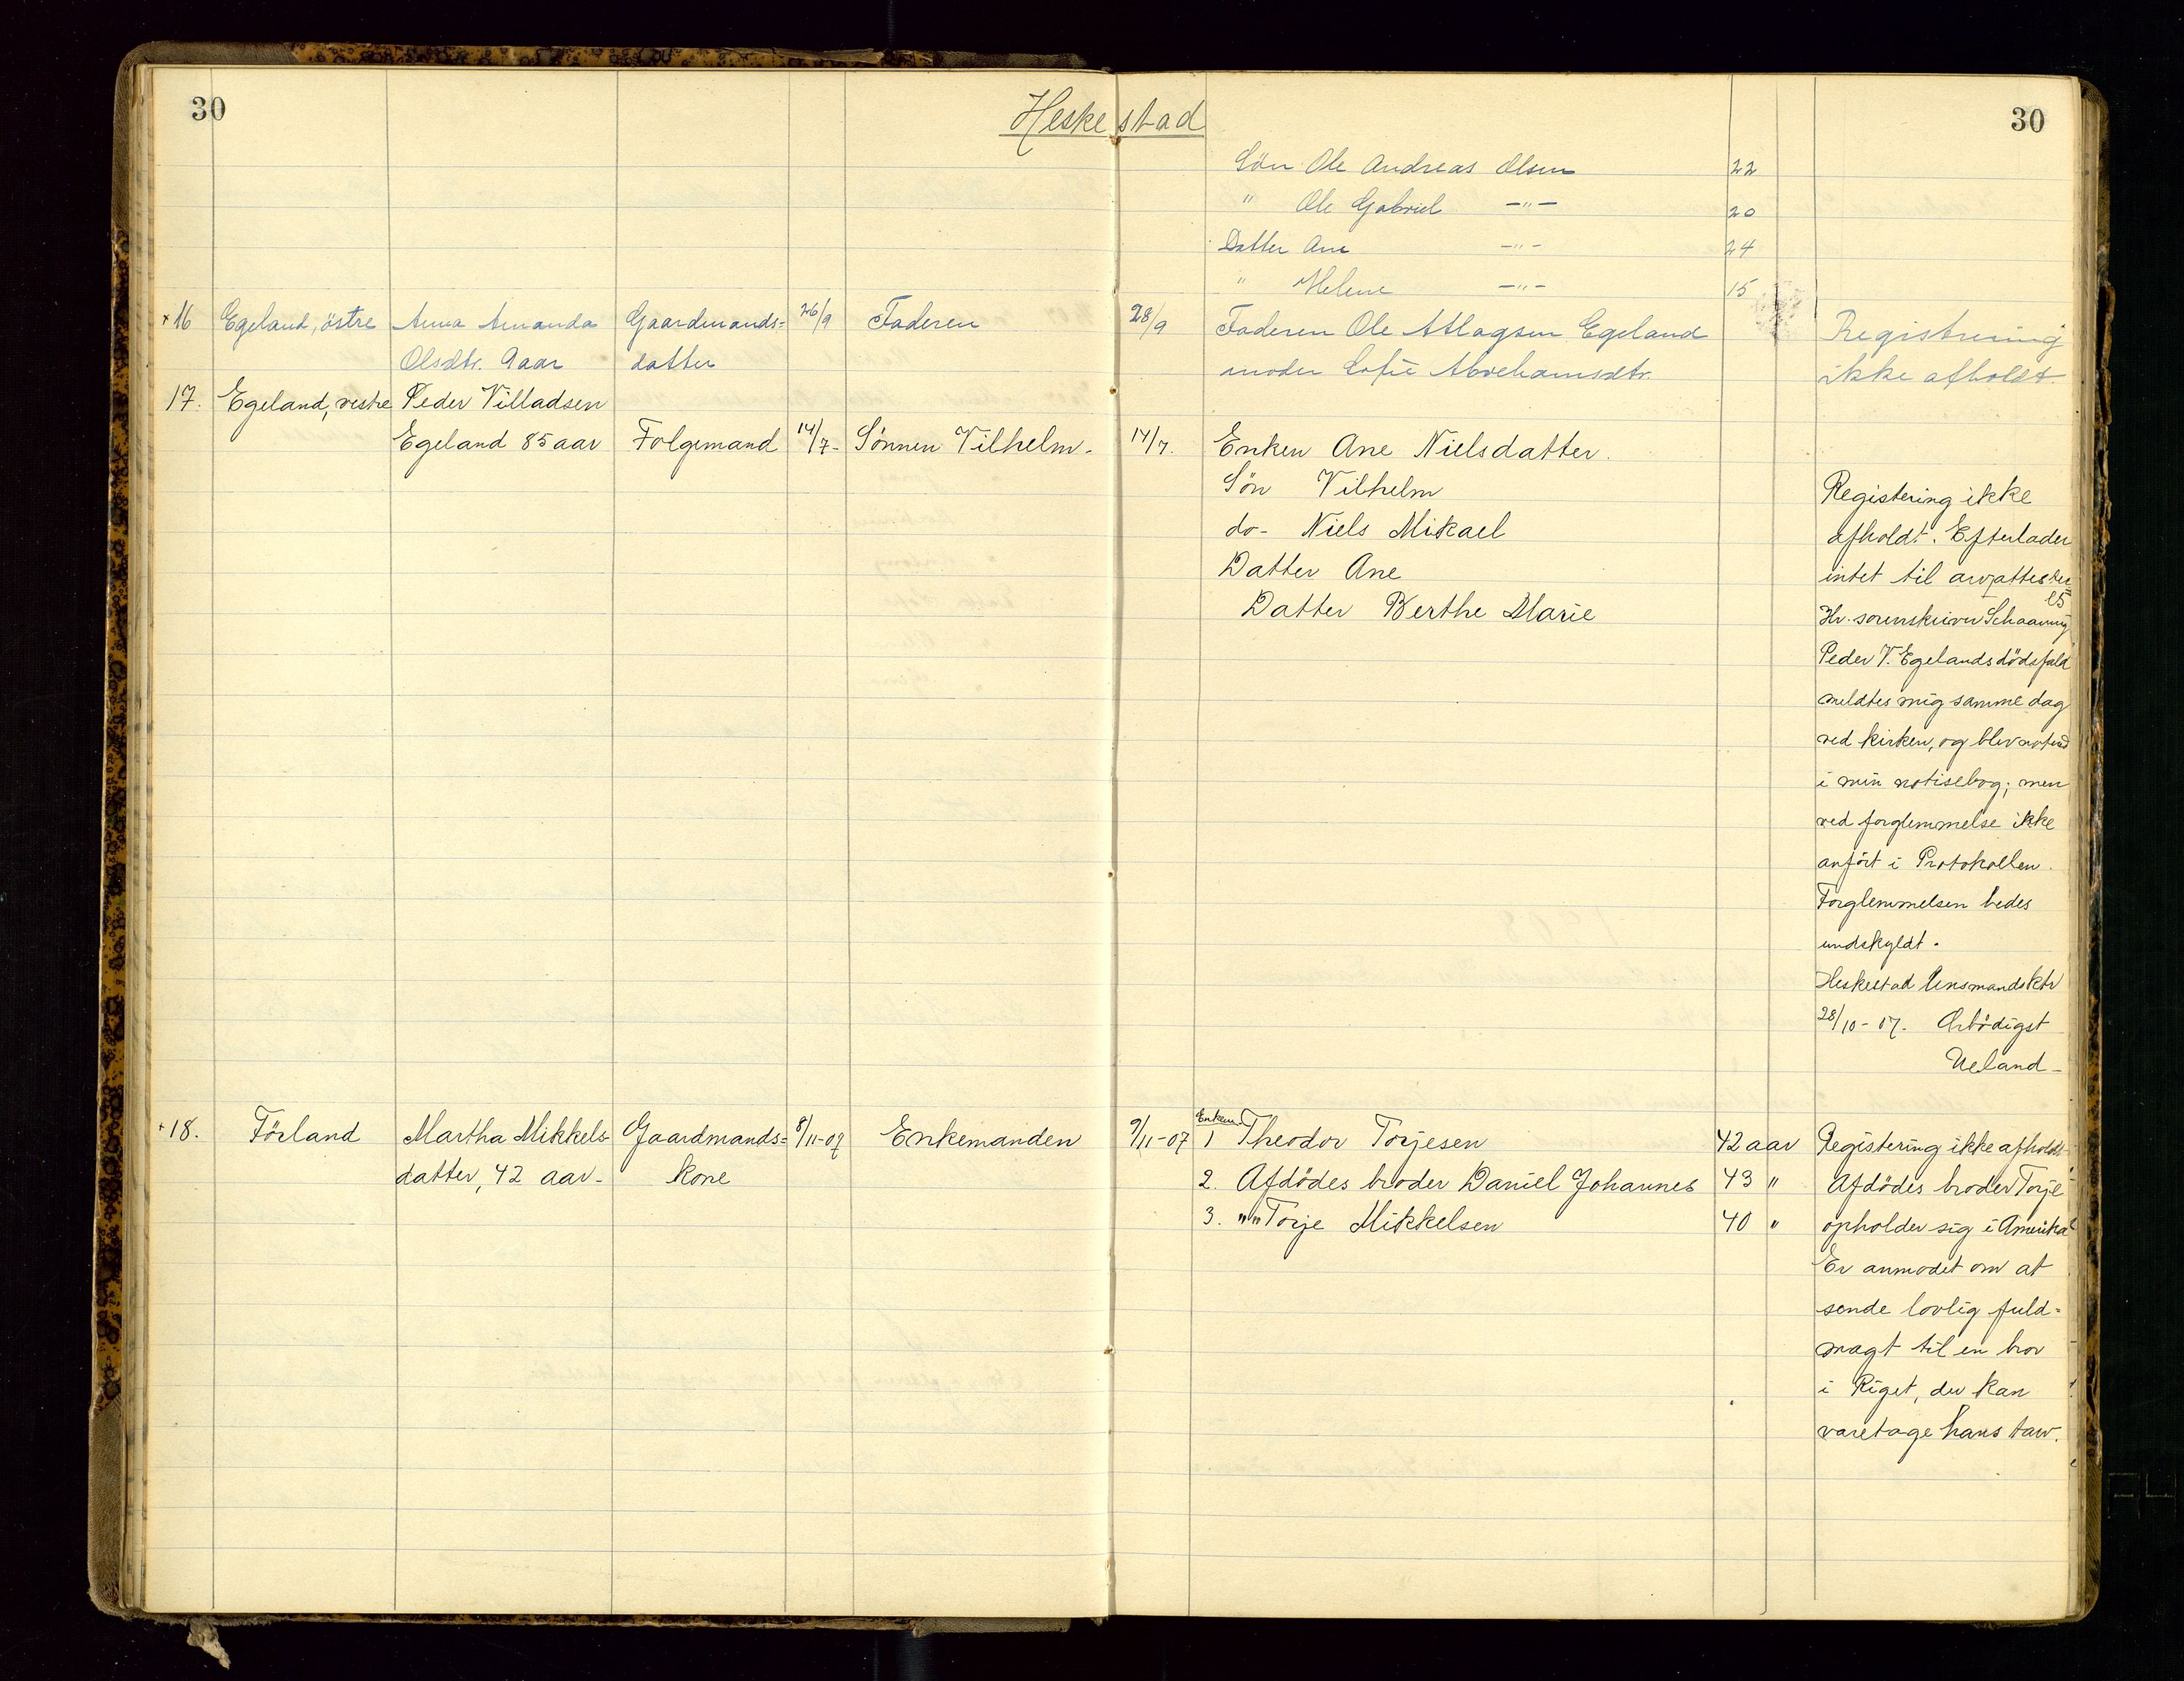 30
Heskestad
30
Søn Ole Andreas Olsen 22
" Ole Gabriel —"— 20
Datter Ane —"— 24
" Helene —"— 15
+16 Egeland, östre Anna Amanda Gaardmands= 26/9 Faderen 28/9 Faderen Ole Atlagsen Egeland Registrering
Olsdtr. 9 aar datter moder Sofie Abrehamsdtr. ikke afholdt.
17. Egeland, vestre Peder Villadsen
Egeland 85 aar Folgemand 14/7- Sönnen Vilhelm. 14/7. Enken Ane Nielsdatter.
Sön Vilhelm Registering ikke
do- Niels Mikael afholdt. Efterlader
Datter Ane intet til
Datter Berthe Marie Hr. sorenskriver Schaanning
Peder V. Egelands dödsfald
meldtes mig samme dag
ved kirken, og blev noteret
i min notisebog; men
ved forglemmelse ikke
anfört i Protokollen.
Forglemmelsen bedes
undskyldt.
Heskestad lensmandsktr
28/10-07. Ærbödigst
Ueland-
+18. Förland Martha Mikkels- Gaardmands= 8/11-07 Enkemanden 9/11-07 Enkem 1 Theodor Torjesen 42 aar Registering ikke afholdt
datter, 42 aar- kone 2. Afdödes broder Daniel Johannes 43 " Afdödes broder Torje
3. "" Torje Mikkelsen 40 " opholder sig i Amerika
Er anmodet om at
sende lovlig fuld=
magt til en bror
i Riget, der kan
varetage hans tarv.